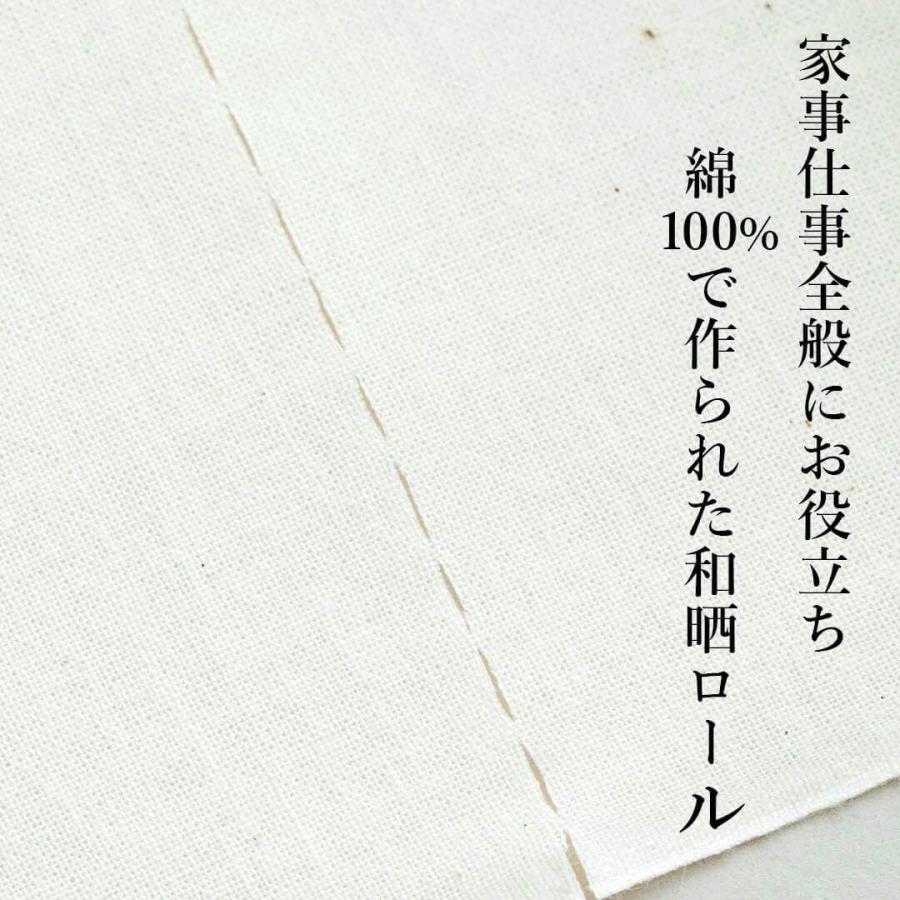 家事仕事全般にお役立ち
綿100%で作られた和晒ロール